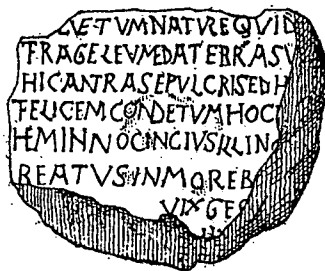 LVETVMNATVREQVIL
FRAGELEVMEDATEBRAS
HICANTRASEPVLCRISEDH
FELICEMCONDETVMHOCI
HEMINNOCINCIVSILLINC
REATVSINMOREB
VIXGES